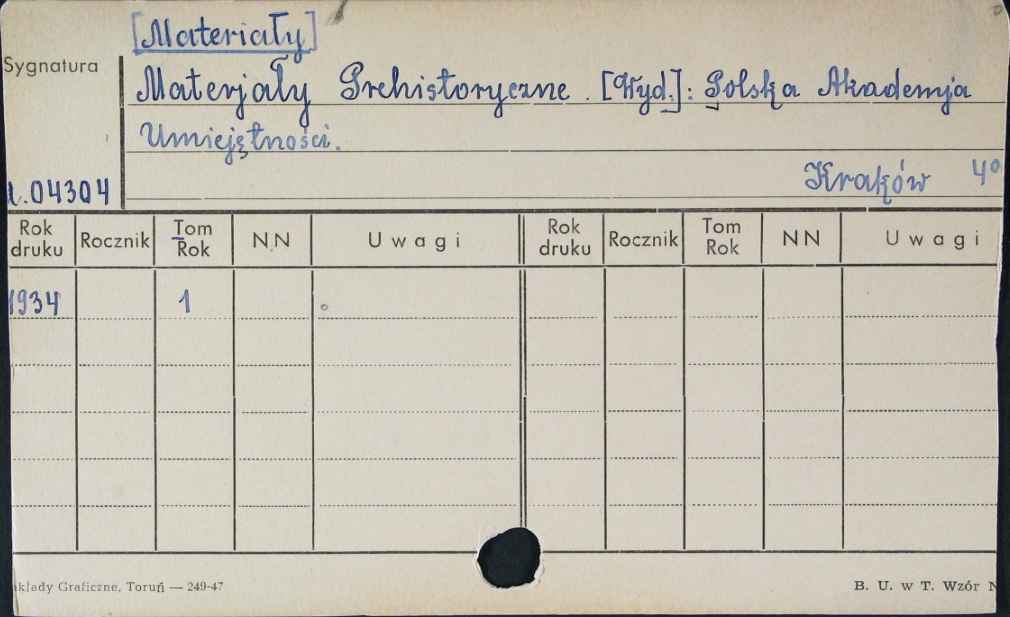 [Materiały]
Sygnatura
Materjały Prehistoryczne. [Wyd.]: Polska Akademja
Umiejętności.
Kraków 4º
04304
Rok druku Rocznik Tom Rok NN Uwagi Rok druku Rocznik Tom Rok NN Uwagi
1934 1
Graficzne, Toruń — 249-47
B. U. w T. Wzór